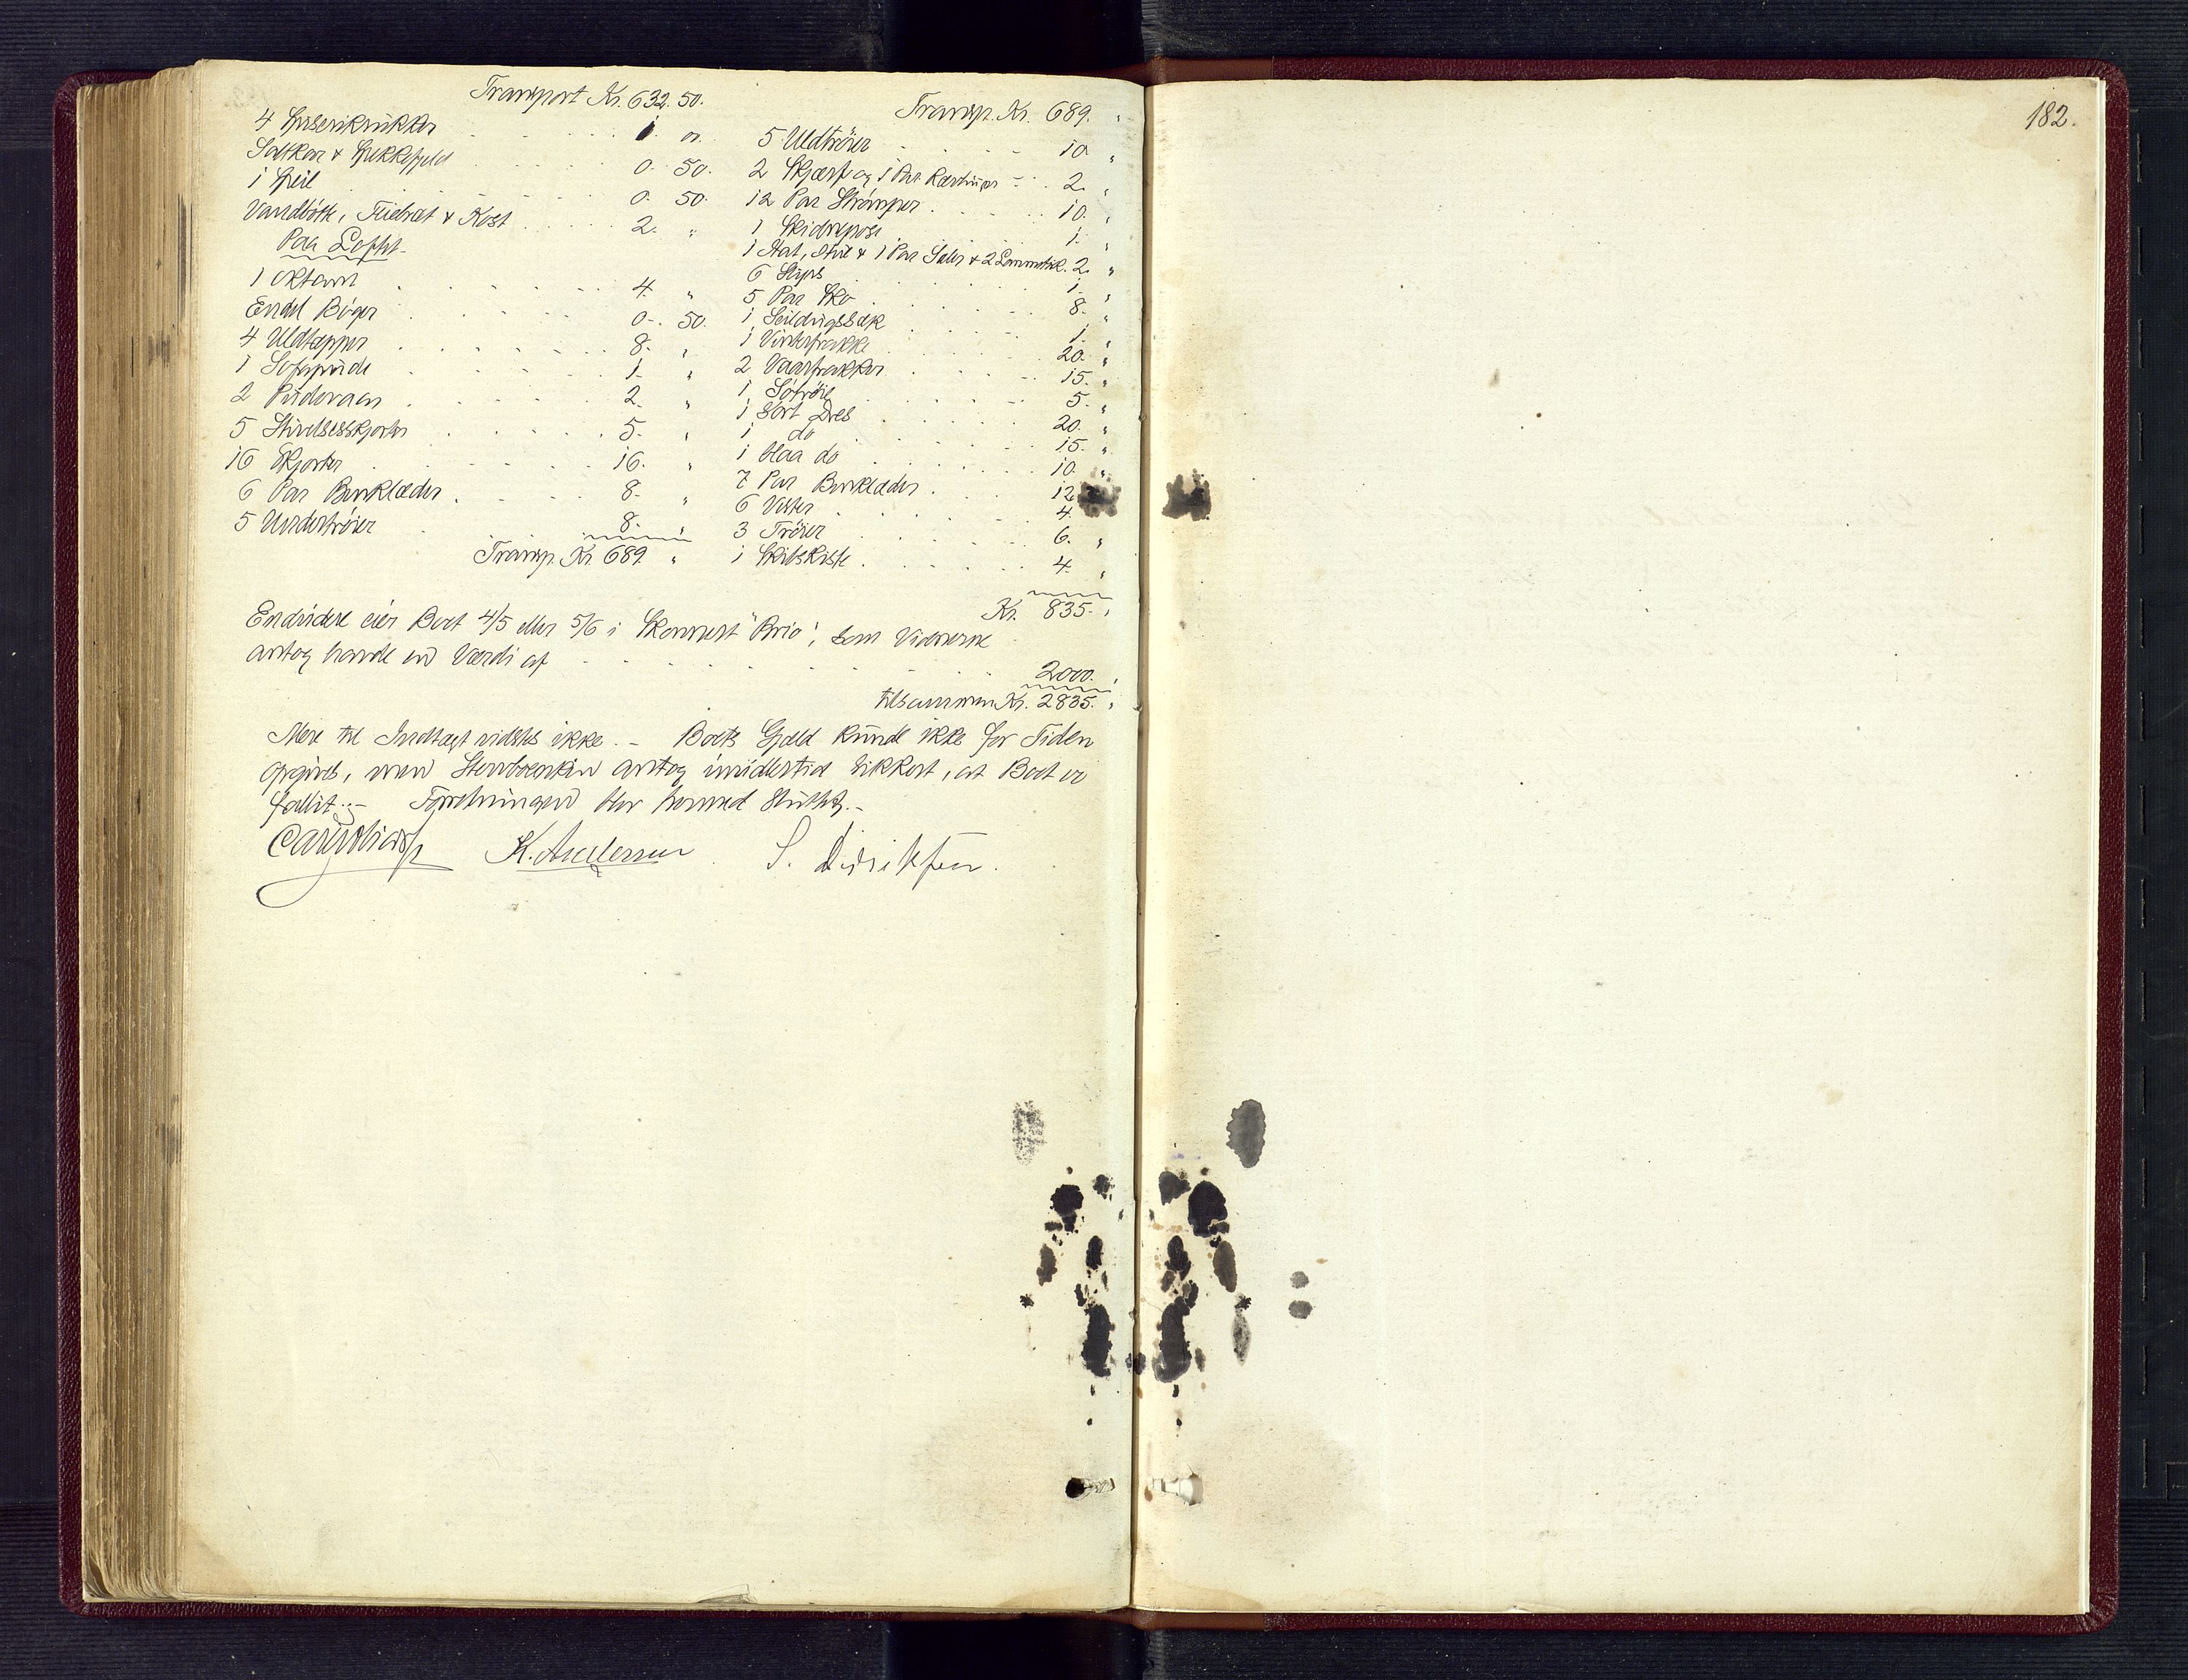 Transport Kr. 632. 50.
4 Hysenkrukker 1. "
Saltkar & Hakkefjæl 0. 50.
1 Speil 0. 50.
Vandbøtte, Fiiebræt & Kost 2. "
Paa Loftet.
1 Oktant 4. "
Endel Bøger 0. 50.
4 Uldtæpper 8. "
1 Sofapude 1. "
2 Pudevaar 2. "
5 Stivelsesskjorter 5. "
16 Skjorter 16. "
6 Par Benklæder 8. "
5 Undertrøier 8. "
Transp. Kr. 689. "
Transp. Kr. 689. "
5 Uldtrøier 10. "
2 Skjærf og 1 Par 2. "
12 Par Strømper 10. "
1 Skidnepose 1. "
1 Hat, & 1 Par Seler & 2 Lommetørk. 2. "
6 Slips 1. "
5 Par Sko 8. "
1 Seildugssæk 1. "
1 Vinterfrakke 20. "
2 Vaarfrakker 15. "
1 Søtrøie 5. "
1 sort Dres 20. "
1 do 15. "
1 blaa do 10. "
7 Par Benklæder 12. "
6 Vester 4. "
3 Trøier 6. "
1 Skibskiste 4. "
Kr. 835. "
Endvidere eier Boet 4/5 eller 5/6 i Skonnert "Brio", som Vidnerne
antog havde en Værdi af 2000. "
tilsammen Kr. 2835. "
Mere til Indtægt vidstes ikke. - Boets Gjæld kunde ikke for Tiden
opgives, men Stervboenken antog imidlertid sikkert, at Boet er
fallit. - Forretningen blev hermed sluttet. -
K. Andersen S. Diriksen.
182.